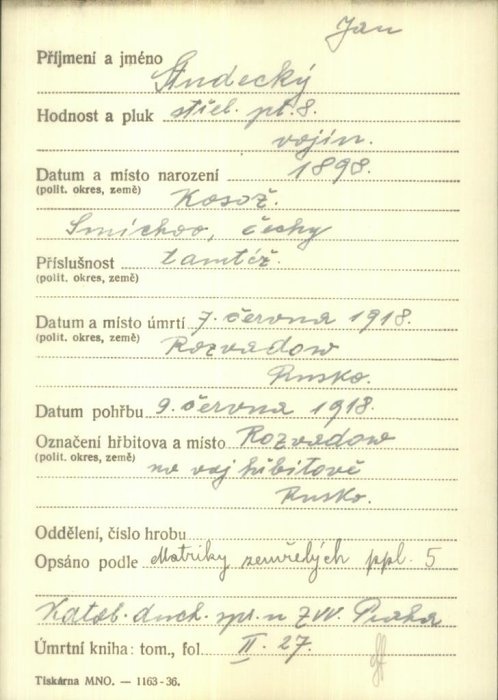 Jan
Příjmení a jméno Studecký
Hodnost a pluk střel. pl. 8.
vojín.
Datum a místo narození 1898.
(polit. okres, země) Kosoř.
Smíchov, Čechy
Příslušnost tamtéž.
(polit. okres, země)
Datum a místo úmrtí 7. června 1918.
(polit. okres, země) Rozvadow
Rusko.
Datum pohřbu 9. června 1918.
Označení hřbitova a místo Rozvadow
(polit. okres, země) na voj hřbitově
Rusko.
Oddělení, číslo hrobu
Opsáno podle Matriky zemřelých ppl. 5
Katol. duch. spr. u ZVV. Praha
Úmrtní kniha: tom., fol. II. 27.
Tiskárna MNO. — 1163-36.